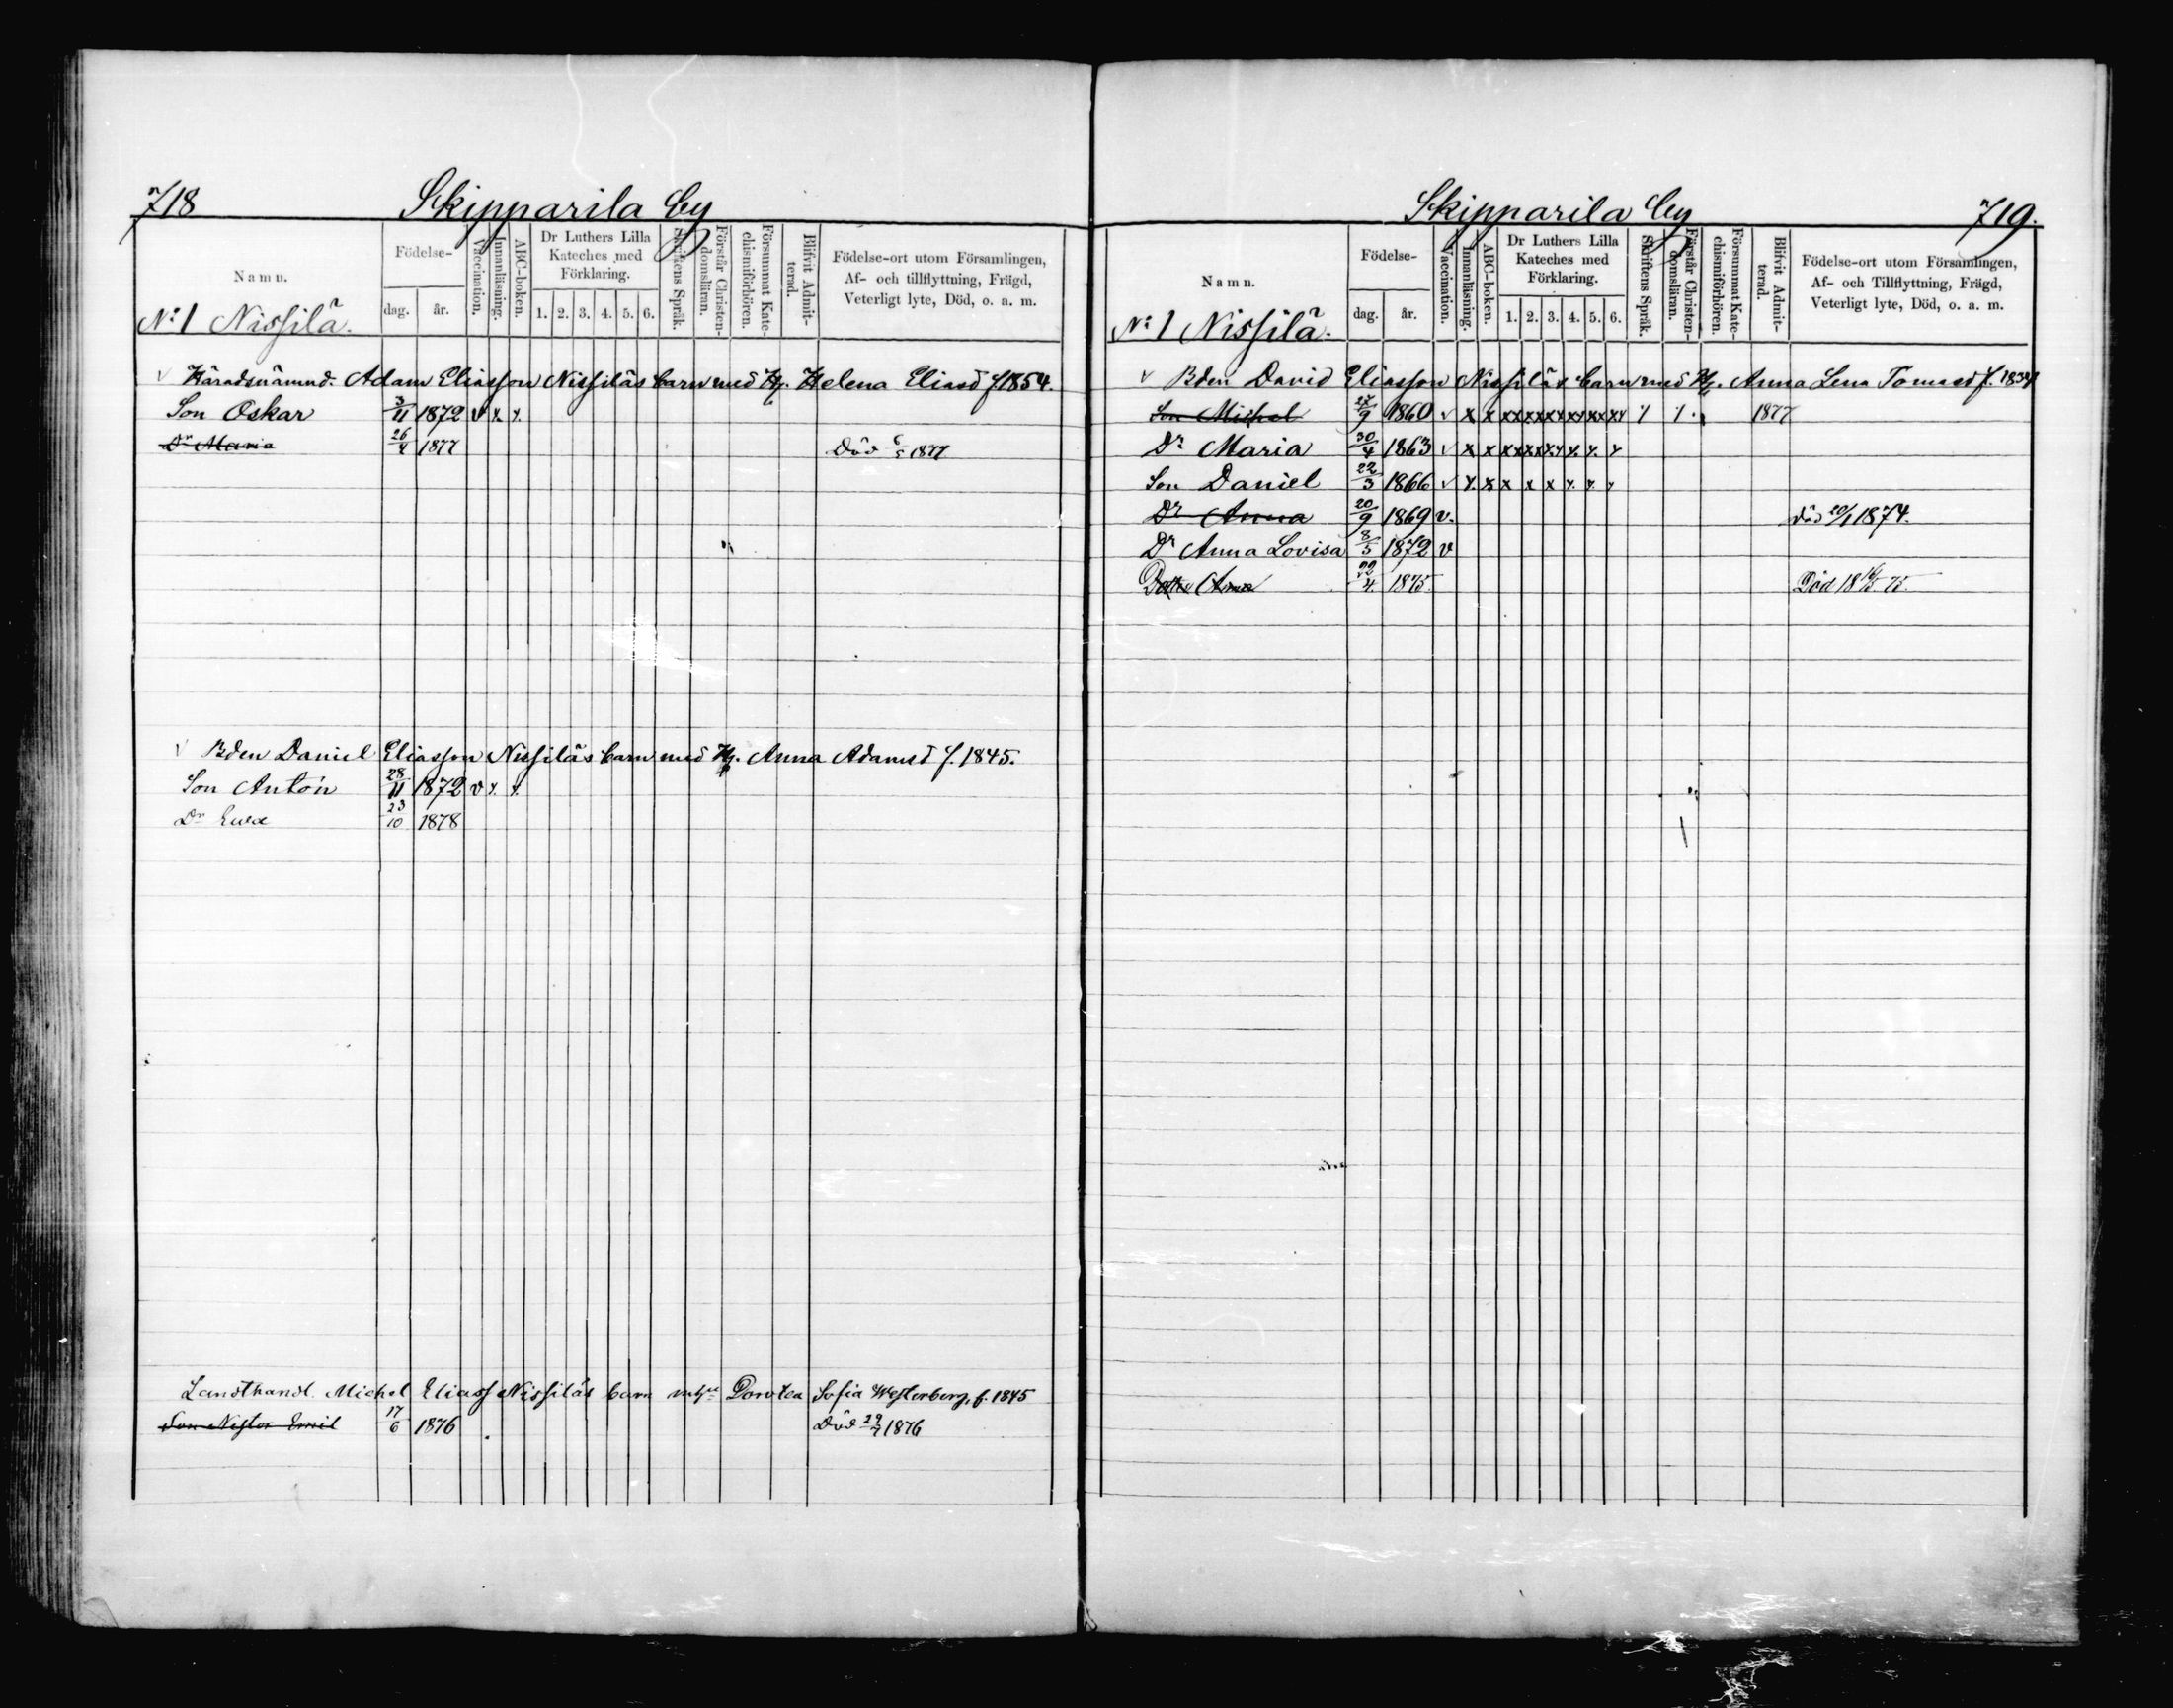 718 Skipparila by
Namn. Födelse- dag. år. Vaccination. Innanläsning. ABC-boken. Dr Luthers Lilla Kateches med Förklaring. 1. 2. 3. 4. 5. 6. Skriftens Språk. Förstår Christendomsläran. Försummat Katechismiförhören. Blifvit Admitterad. Födelse-ort utom Församlingen, Af- och tillflyttning, Frägd, Veterligt lyte, Död, o. a. m.
No 1 Nissilä.
v Häradsnämnd. Adam Eliasson Nissiläs barn med H. Helena Eliasd f. 1854.
Son Oskar 3/11 1872 v x x
Dr Maria 26/4 1877 Död 6/5 1877
v Bden Daniel Eliasson Nissiläs barn med H. Anna Adamsd f. 1845.
Son Anton 28/11 1872 v x x
Dr Eva 23/10 1878
Landthandl. Michel Eliass Nissiläs barn Dorotea Sofia Westerberg, f. 1845
Son Nestor Emil 17/6 1876 Död 29/7 1876
Skipparila by 719.
Namn. Födelse- dag. år. Vaccination. Innanläsning. ABC-boken. Dr Luthers Lilla Kateches med Förklaring. 1. 2. 3. 4. 5. 6. Skriftens Språk. Förstår Christendomsläran. Försummat Katechismiförhören. Blifvit Admitterad. Födelse-ort utom Församlingen, Af- och Tillflyttning, Frägd, Veterligt lyte, Död, o. a. m.
No 1 Nissilä.
v Bden David Eliasson Nissiläs barn med H. Anna Lena Tomasd f.
Son Michel 27/9 1860 v x x xx xx xx xx xx xx x x 1877
Dr Maria 30/4 1863 v x x xx xx xx x x x
Son Daniel 22/3 1866 v x x x x x x x x
Dr Anna 20/9 1869 v. Död 20/1 1874.
Dr Anna Lovisa 8/5 1872 v
Dotter Anna 22/4 1875. Död 18 16/5 75.